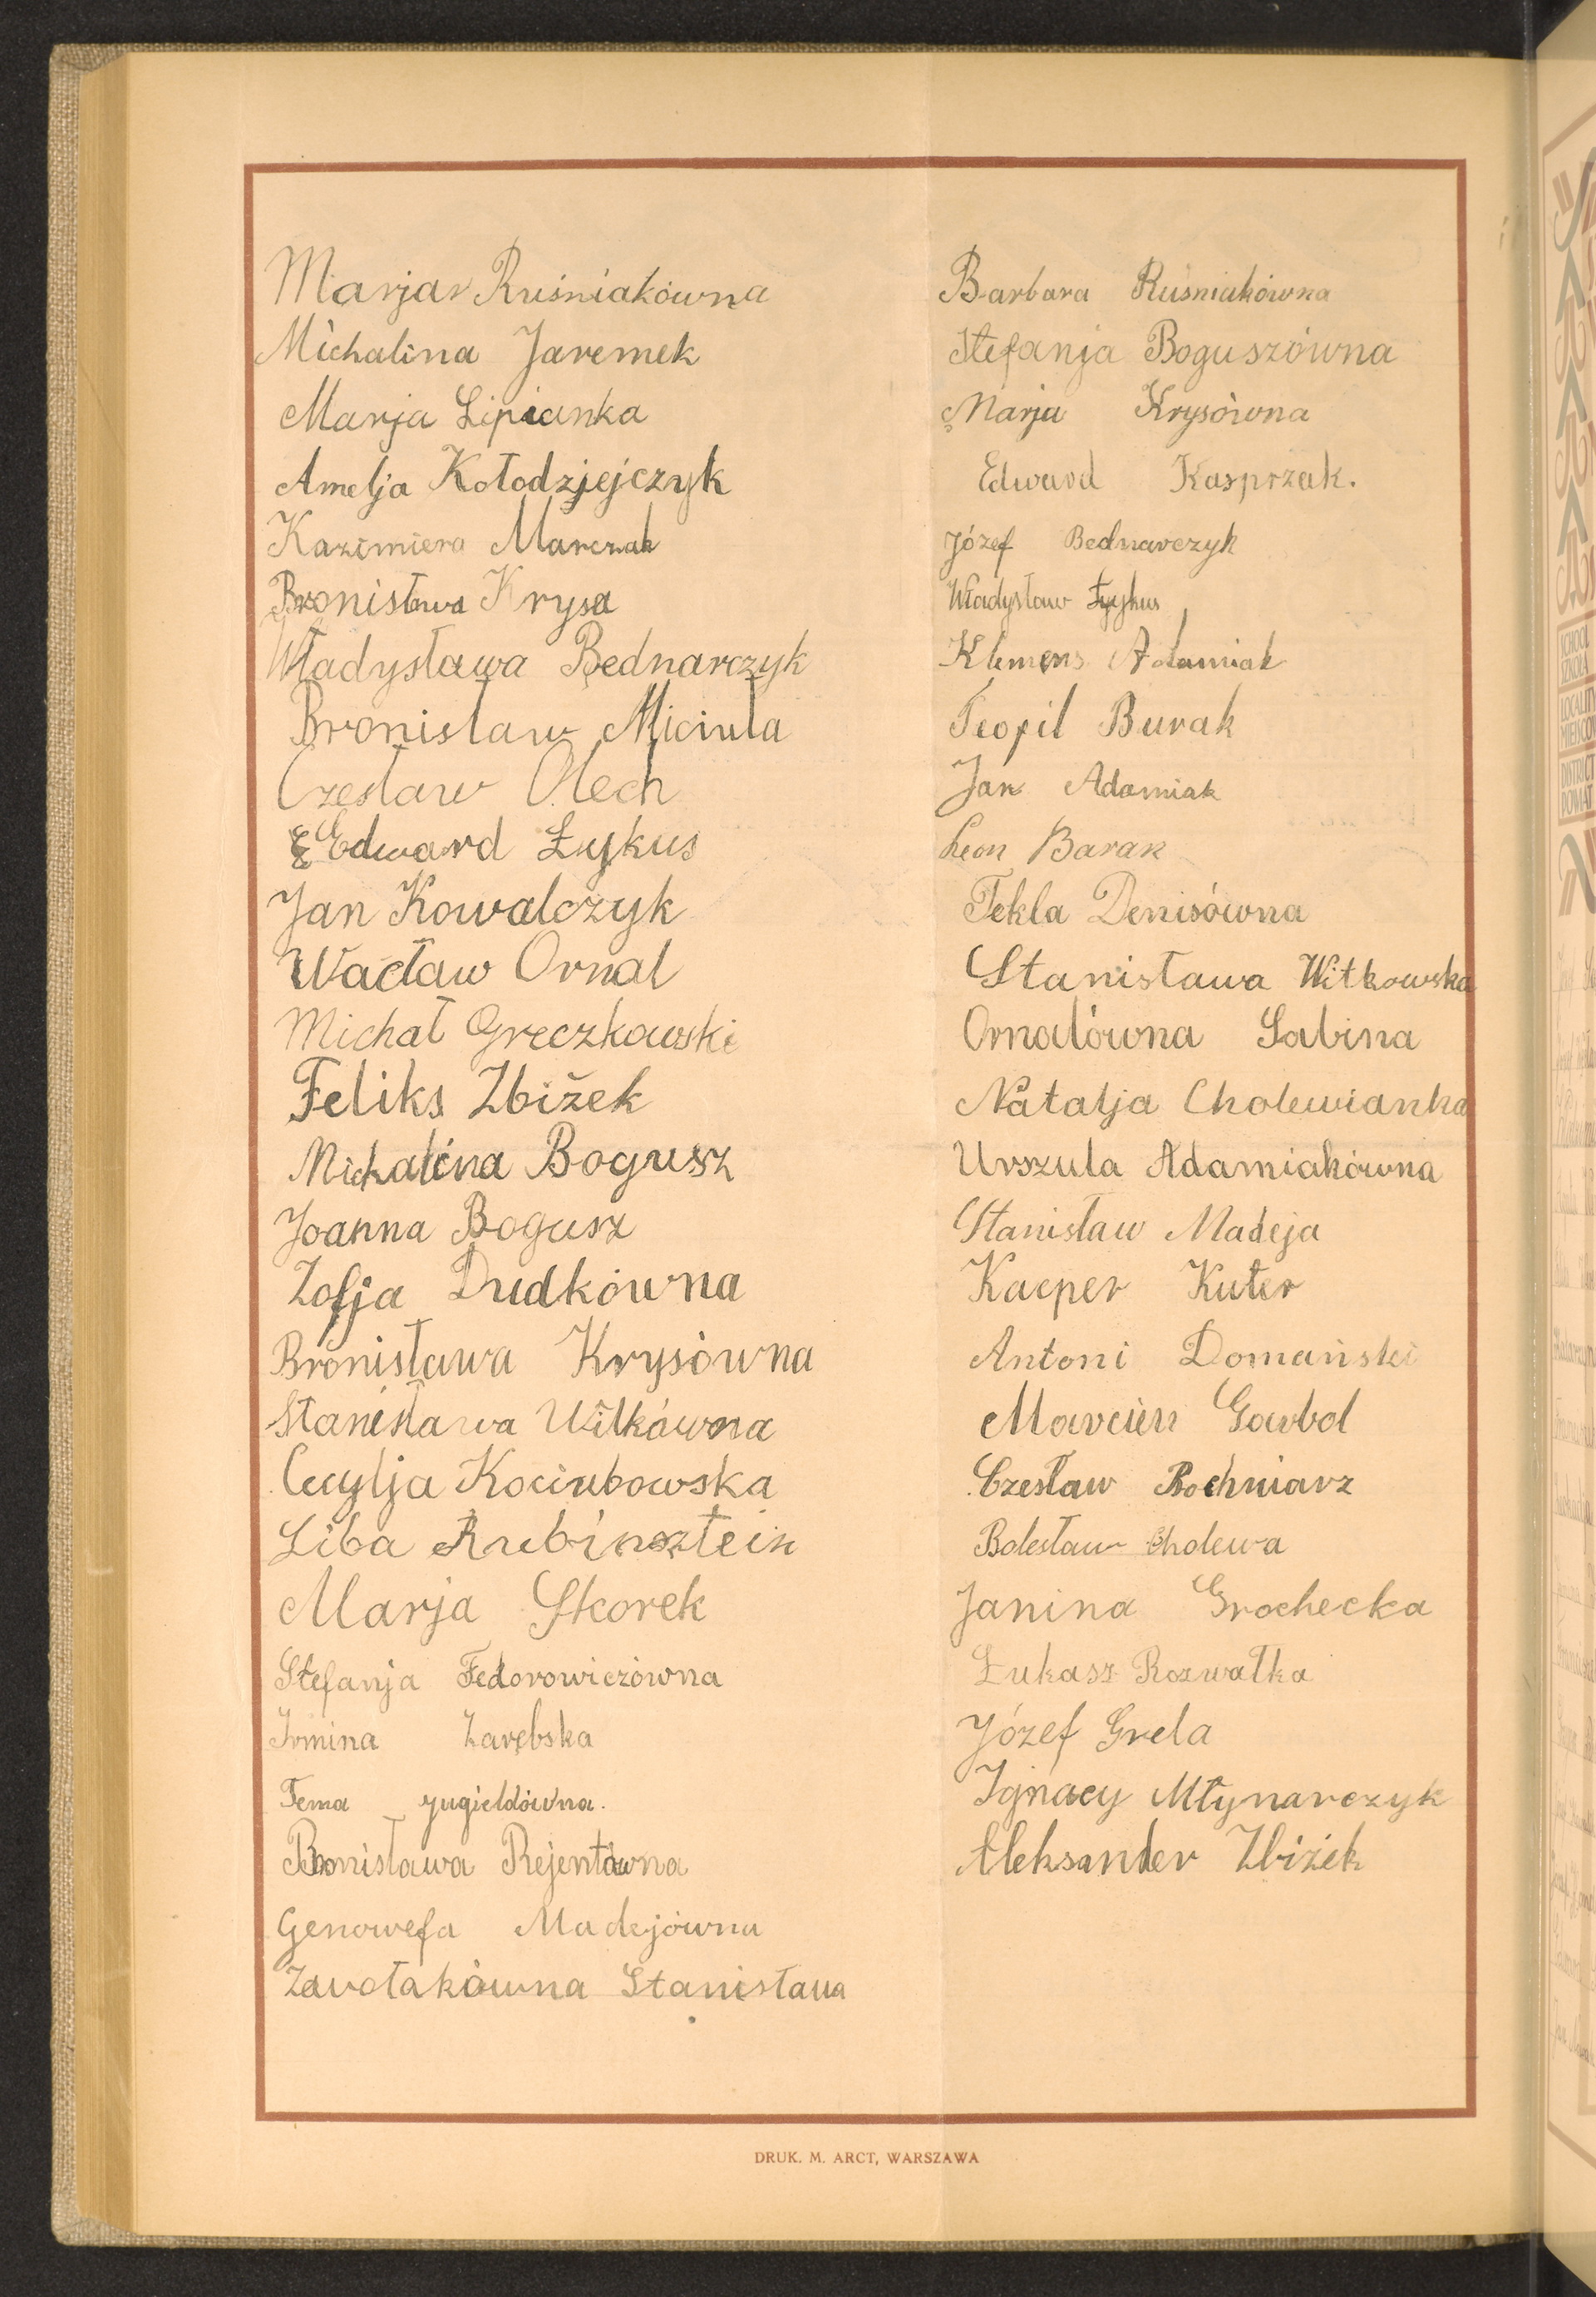 Marja Ruśniakówna
Michalina Jaremek
Marja Lipianka
Amelja Kołodziejczyk
Kazimiera Marczak
Bronisława Krysa
Władysława Bednarczyk
Bronisław Miciuła
Czesław Olech
Edward Łykus
Jan Kowalczyk
Wacław Ornal
Michał Greczkowski
Feliks Zbiżek
Michalina Bogusz
Joanna Bogusz
Zofja Dudkówna
Bronisława Krysówna
Stanisława Witkówna
Cecylja Kociubowska
Liba Rubinsztein
Marja Skorek
Stefanja Fedorowiczówna
Irmina Zarębska
Fema
Bronisława Rejentówna
Genowefa Madejówna
Zawołakówna Stanisława
Barbara Ruśniakówna
Stefanja Boguszówna
Marja Krysówna
Edward Kasprzak.
Józef Bednarczyk
Władysław Łykus
Klemens Adamiak
Teofil Burak
Jan Adamiak
Leon Barak
Tekla Denisówna
Stanisława Witkowska
Ornalówna Sabina
Natalja Cholewianka
Urszula Adamiakówna
Stanisław Madeja
Kacper Kuter
Antoni Domański
Marcin
Czesław Bochniarz
Bolesław Cholewa
Janina Grochecka
Łukasz Rozwałka
Józef Grela
Ignacy Młynarczyk
Aleksander Zbiżek
DRUK. M. ARCT, WARSZAWA
SCHOOL
SZKOŁA